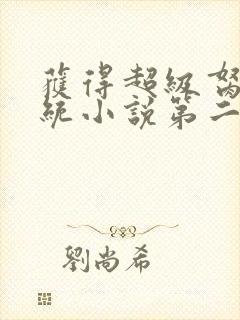 獲得超級
統小說第二
劉尚希